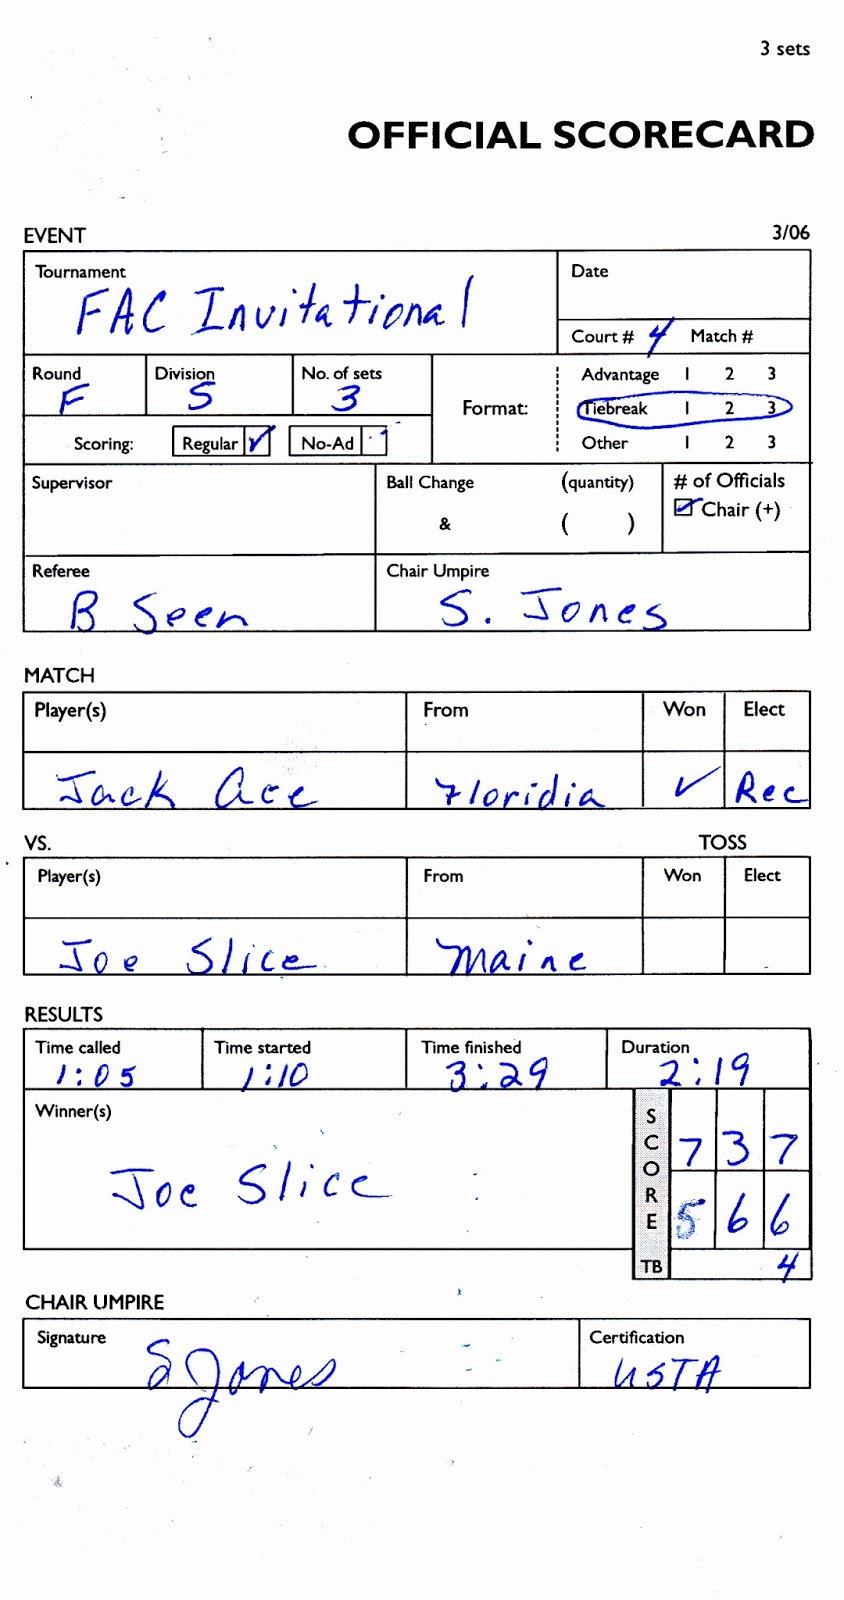 3 sets
OFFICIAL SCORECARD
EVENT 3/06
Tournament Date
FAC Invitational
Court # 4 Match #
Round Division No. of sets
F S 3
Format:
Advantage 1 2 3
Tiebreak 1 2 3
Other 1 2 3
Scoring: Regular ✓ No-Ad
Supervisor Ball Change (quantity) # of Officials
& ( ) Chair (+)
Referee Chair Umpire
B Seen S. Jones
MATCH
Player(s) From Won Elect
Jack Ace Floridia ✓ Rec
VS. TOSS
Player(s) From Won Elect
Joe Slice Maine
RESULTS
Time called Time started Time finished Duration
1:05 1:10 3:29 2:19
Winner(s)
Joe Slice
SCORE
7 3 7
5 6 6
TB 4
CHAIR UMPIRE
Signature Certification
S Jones USTA